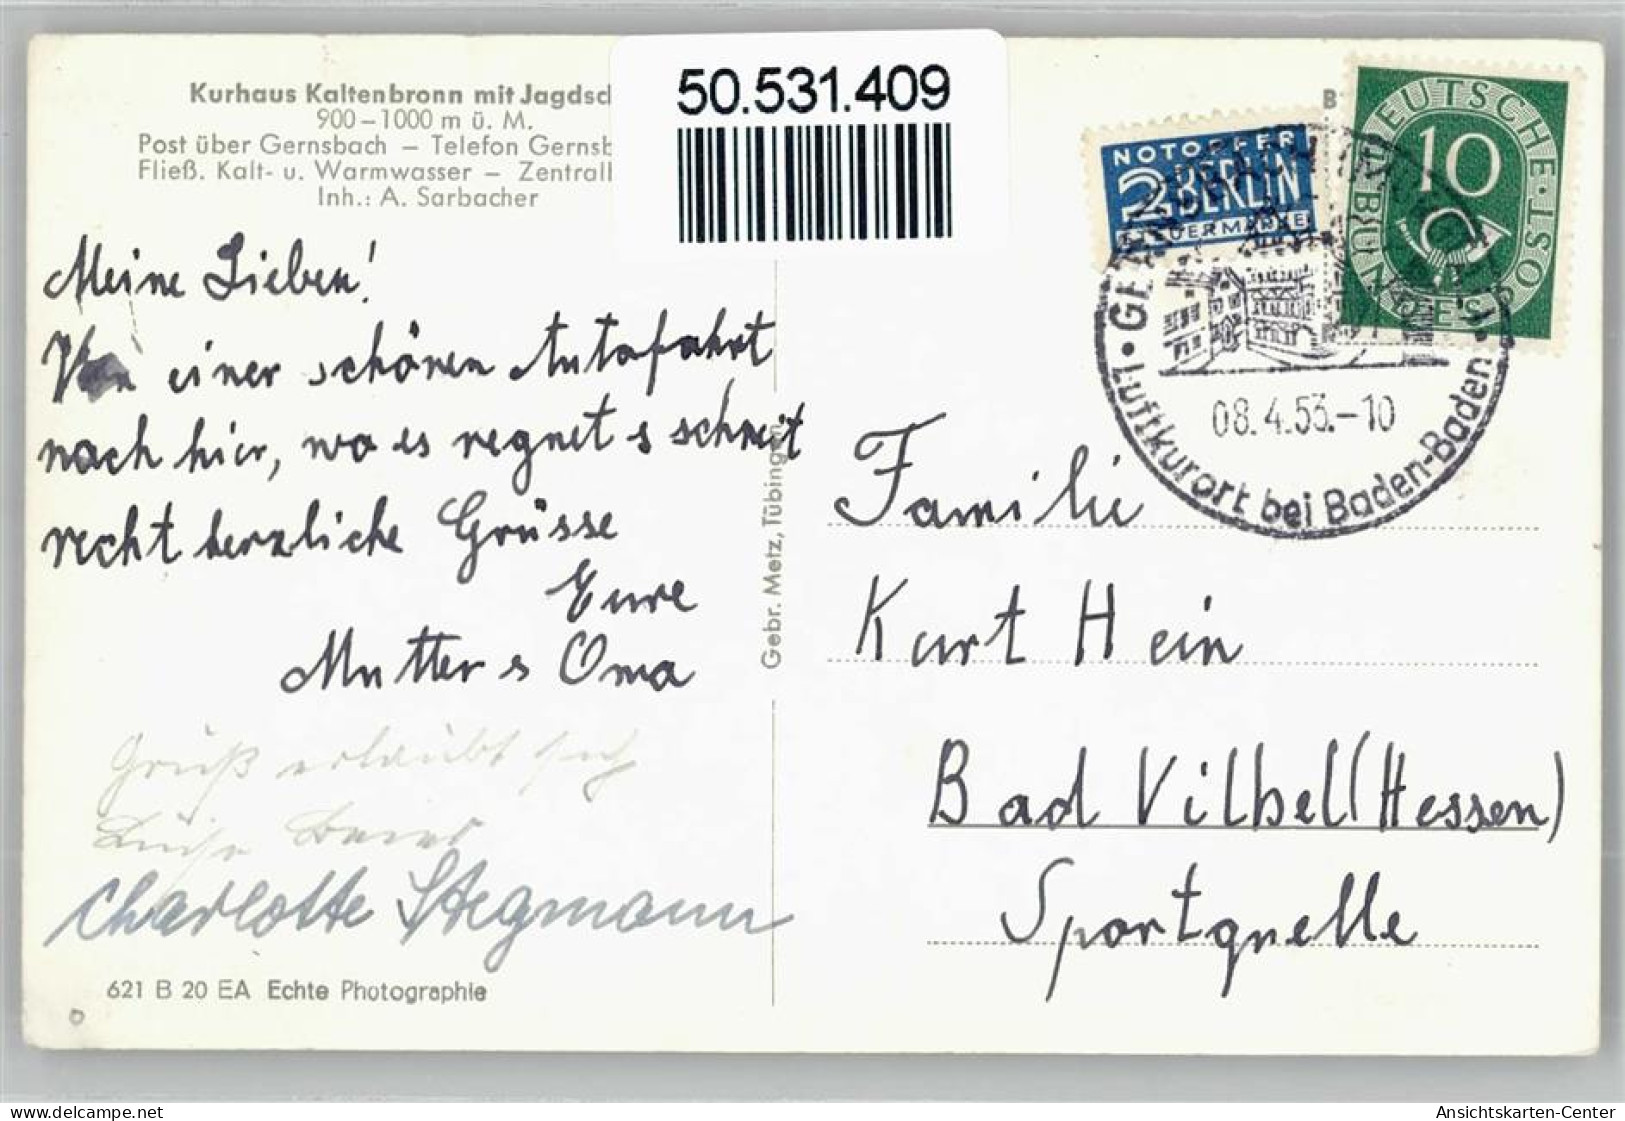 50.531.409
Kurhaus Kaltenbronn mit Jagdsc
900–1000 m ü. M.
Post über Gernsbach – Telefon Gernsb
Fließ. Kalt- u. Warmwasser – Zentral
Inh.: A. Sarbacher
Meine Lieben!
Von einer schönen Autofahrt
nach hier, wo es regnet & schneit
recht herzliche Grüsse
Eure
Mutter & Oma
Grüß erlaubt sich
Luise
Charlotte Stegmann
621 B 20 EA Echte Photographie
Gebr. Metz, Tübingen
B
NOTOPFER
2 BERLIN
STEUERMARKE
DEUTSCHE BUNDESPOST
10
08.4.53.-10
Luftkurort bei Baden-Baden
Familie
Kurt Hein
Bad Vilbel (Hessen)
Sportquelle
www.delcampe.net
Ansichtskarten-Center